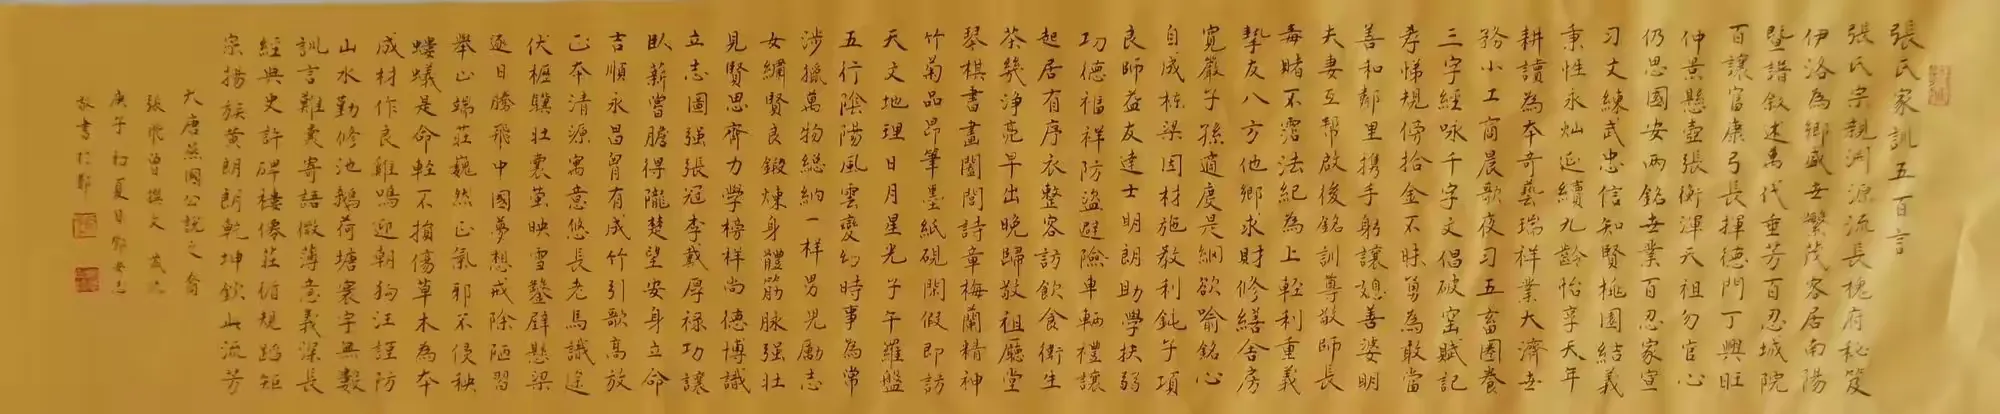 張氏家訓五百言
張氏宗親淵源流長槐府秘笈
伊洛為鄉盛世繁茂客居南陽
暨譜敘述萬代垂芳百忍城院
百讓富康弓長揮德門丁興旺
仲景懸壺張衡渾天祖勿官心
仍思國安兩銘世業百忍家宣
习文練武忠信知賢桃園結義
秉性永灿延續九齡怡享天年
耕讀為本奇藝瑞祥業大濟世
務小工商晨歌夜习五畜圈養
三字經咏千字文倡破窑賦記
孝悌規傍拾金不昧勇為敢當
善和鄰里携手躬讓媳善婆明
夫妻互帮啟後銘訓尊敬師長
毒賭不霑法紀為上輕利重義
摯友八方他鄉求財修繕舍房
寬嚴子孫適度是綱欲喻銘心
自成栋梁因材施教利鈍予項
良師益友達士明朗助學扶弱
功德福祥防盜避險車輛禮讓
起居有序衣整容訪飲食衛生
茶幾淨亮早出晚歸敬祖廳堂
琴棋書畫闔閭詩章梅蘭精神
竹菊品昂筆墨紙硯閑假即訪
天文地理日月星光子午羅盤
五行陰陽風雲變幻時事為常
涉獵萬物總納一樣男兒勵志
女繡賢良鍛煉身體筋脉强壯
見賢思齊力學榜样尚德博識
立志圖强張冠李戴厚禄功讓
臥薪嘗膽得隴楚望安身立命
吉順永昌胄有成竹引歌高放
正本清源寓意悠長老馬識途
伏櫪驥壮囊萤映雪鑿壁懸梁
逐日騰飛中國夢想戒除陋習
舉止端莊巍然正氣邪不侵秧
螻蟻是命輕不損傷草木為本
成材作良雞鳴迎朝狗汪謹防
山水勤修池鵝荷塘寰宇無數
訓言難囊寄語微薄意義深長
經典史許碑樓傳莊循規蹈矩
宗揚族黄朗朗乾坤欽此流芳
大唐燕國公說之裔
張飛曾撰文
庚子初夏日鄧
敬書於鄭